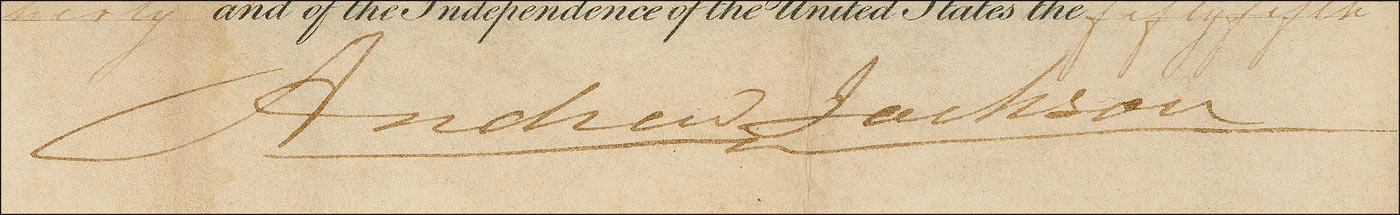 thirty and of the Independence of the United States the fifty fifth
Andrew Jackson